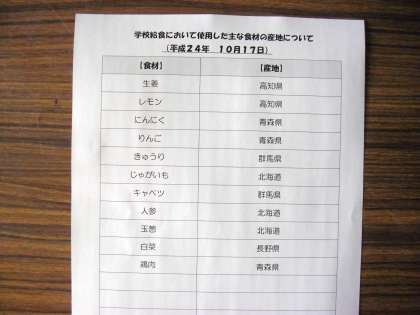 学校給食において使用した主な食材の産地について
（平成24年 10月17日）
【食材】 【産地】
生姜 高知県
レモン 高知県
にんにく 青森県
りんご 青森県
きゅうり 群馬県
じゃがいも 北海道
キャベツ 群馬県
人参 北海道
玉葱 北海道
白菜 長野県
鶏肉 青森県